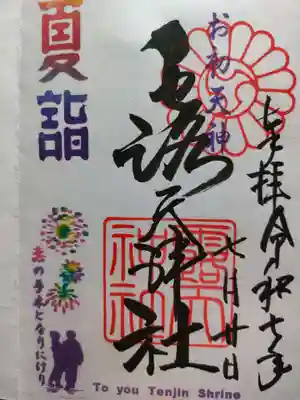 奉拝 令和七年
七月廿日
お初天神
露天神社
夏詣
恋の手本となりにけり
To you Tenjin Shrine